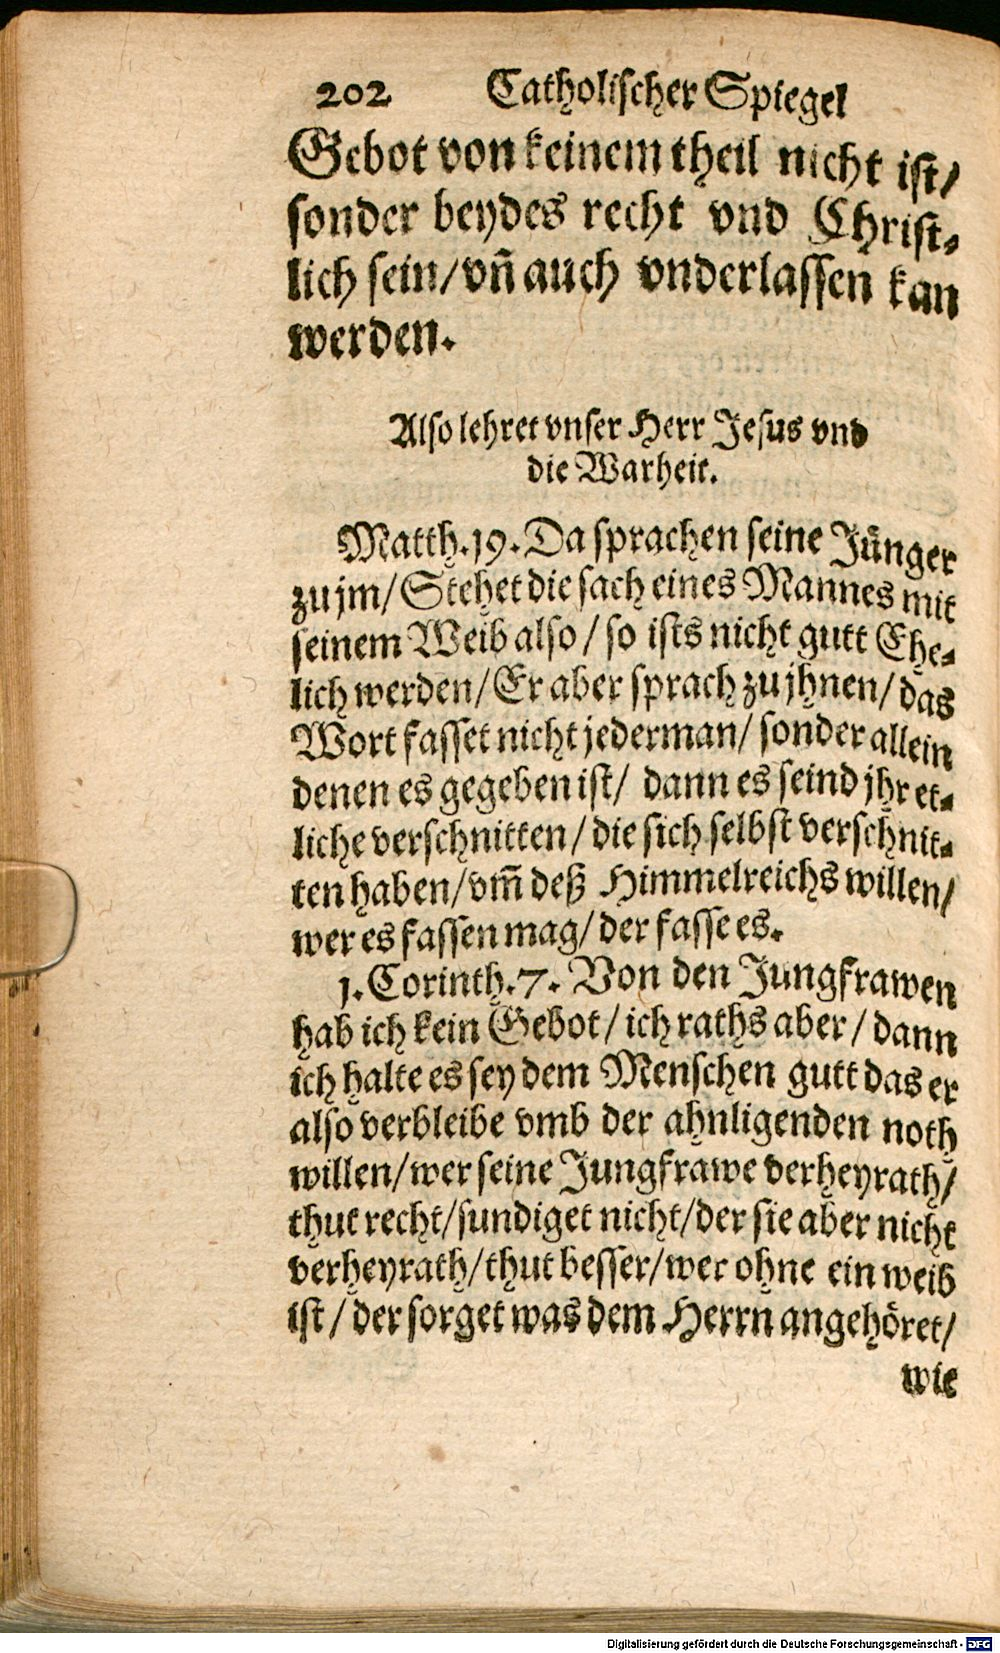 202 Catholischer Spiegel
Gebot von keinem theil nicht ist/
sonder beydes recht vnd Christ-
lich sein/vñ auch vnderlassen kan
werden.
Also lehret vnser Herr Jesus vnd
die Warheit.
Matth.19. Da sprachen seine Jünger
zu jm/Stehet die sach eines Mannes mit
seinem Weib also/so ists nicht gutt Ehe-
lich werden/Er aber sprach zu jhnen/das
Wort fasset nicht jederman/sonder allein
denen es gegeben ist/ dann es seind jhr et-
liche verschnitten/die sich selbst verschnit-
ten haben/vm̃ deß Himmelreichs willen/
wer es fassen mag/der fasse es.
1.Corinth.7. Von den Jungfrawen
hab ich kein Gebot/ich raths aber/dann
ich halte es sey dem Menschen gutt das er
also verbleibe vmb der ahnligenden noth
willen/wer seine Jungfrawe verheyrath/
thut recht/sundiget nicht/der sie aber nicht
verheyrath/thut besser/wer ohne ein weib
ist/der sorget was dem Herrn angehöret/
wie
Digitalisierung gefördert durch die Deutsche Forschungsgemeinschaft - DFG